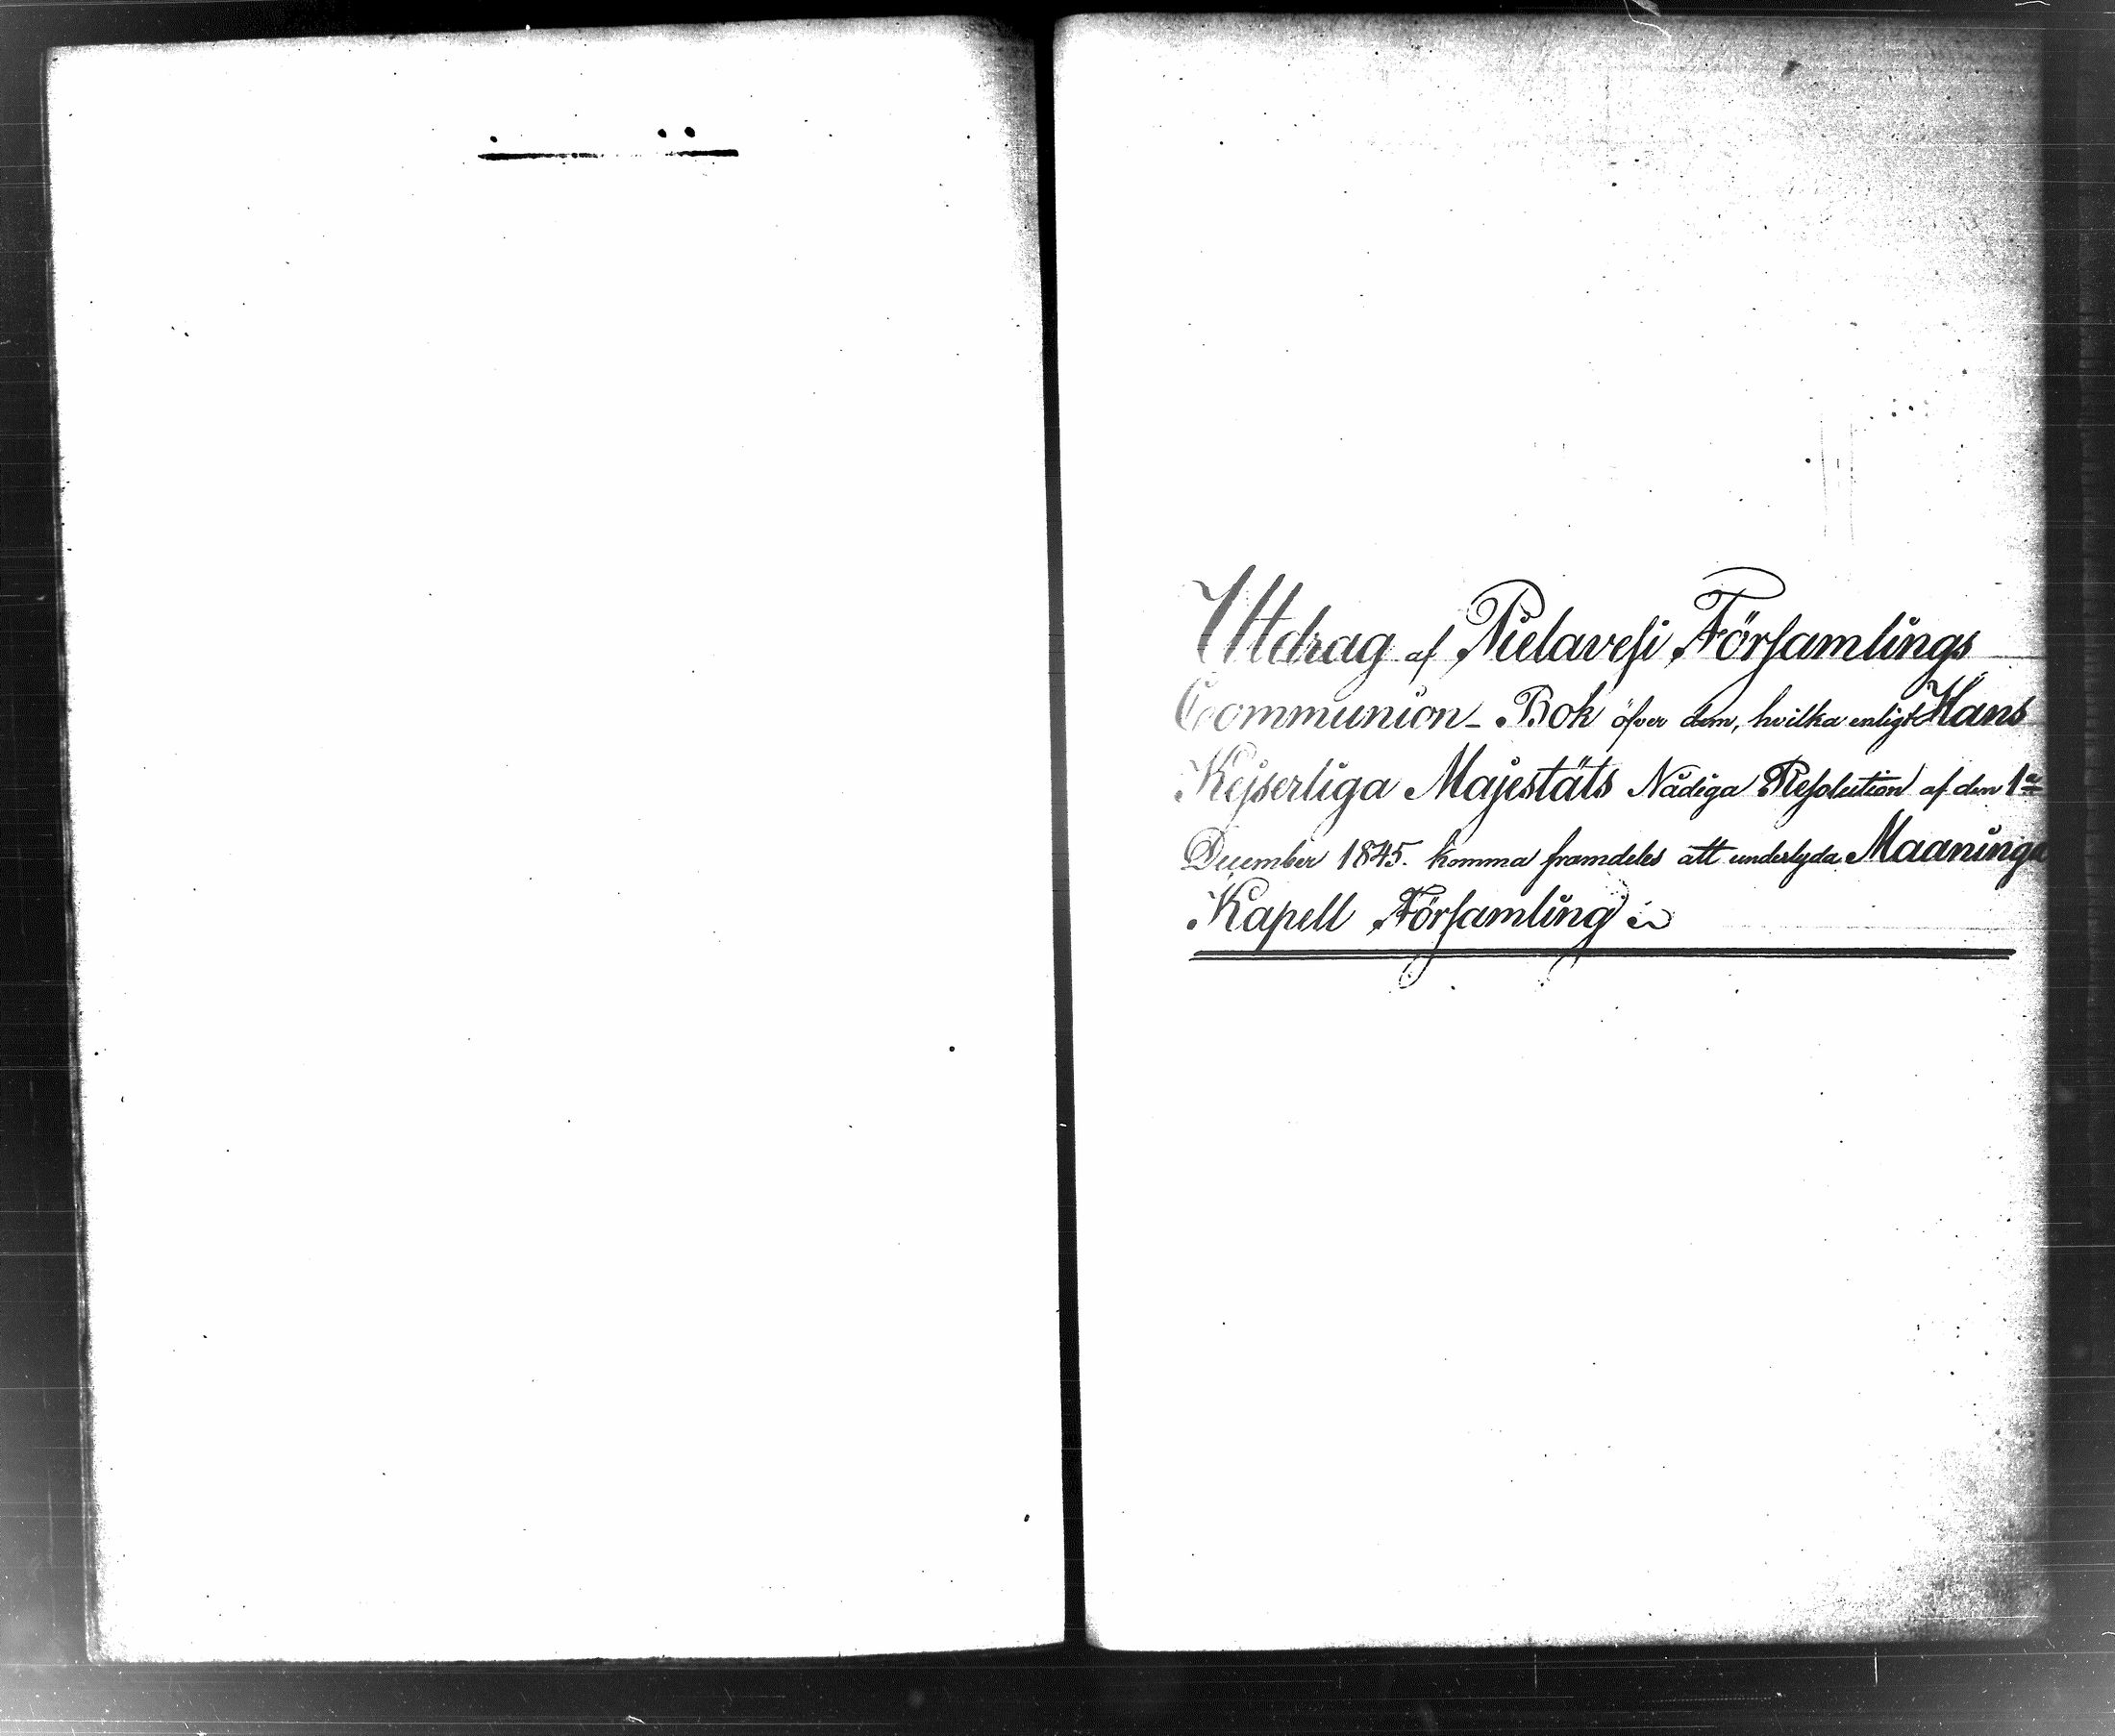 Utdrag af Pielavesi Församlings
Communion - Bok öfver dem, hvilka enligt Hans
Kejserliga Majestäts Nådiga Resolution af den 1a
December 1845. komma framdeles att underlyda Maaninga
Kapell Församling